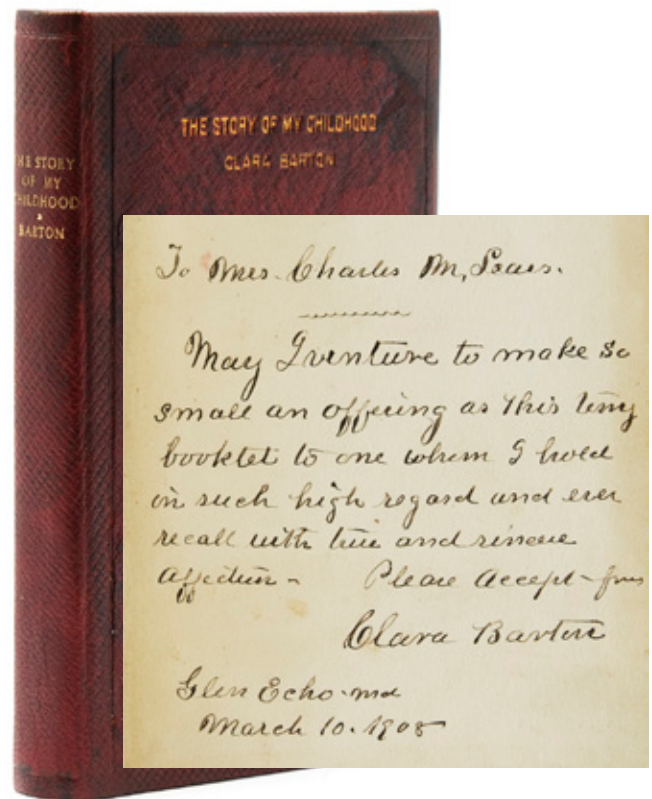 THE STORY OF MY CHILDHOOD
CLARA BARTON
HE STORY
OF MY
CHILDHOOD
BARTON
To Mrs. Charles M. Sears.
May I venture to make so
small an offering as this tiny
booklet to one whom I hold
in such high regard and ever
recall with true and sincere
affection - Please Accept - from
Clara Barton
Glen Echo - Md
March 10. 1908